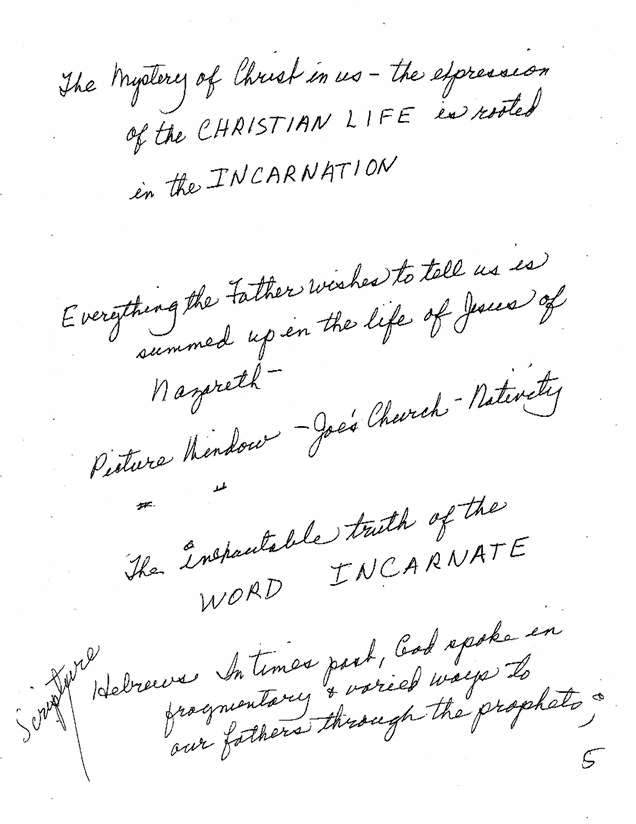 The Mystery of Christ in us - the expression
of the CHRISTIAN LIFE is rooted
in the INCARNATION
Everything the Father wishes to tell us is
summed up in the life of Jesus of
Nazareth -
Picture Window - Joe's Church - Nativity
" "
The inexhaustable truth of the
WORD INCARNATE
Scripture
Hebrews In times past, God spoke in
fragmentary & varied ways to
our fathers through the prophets;
5